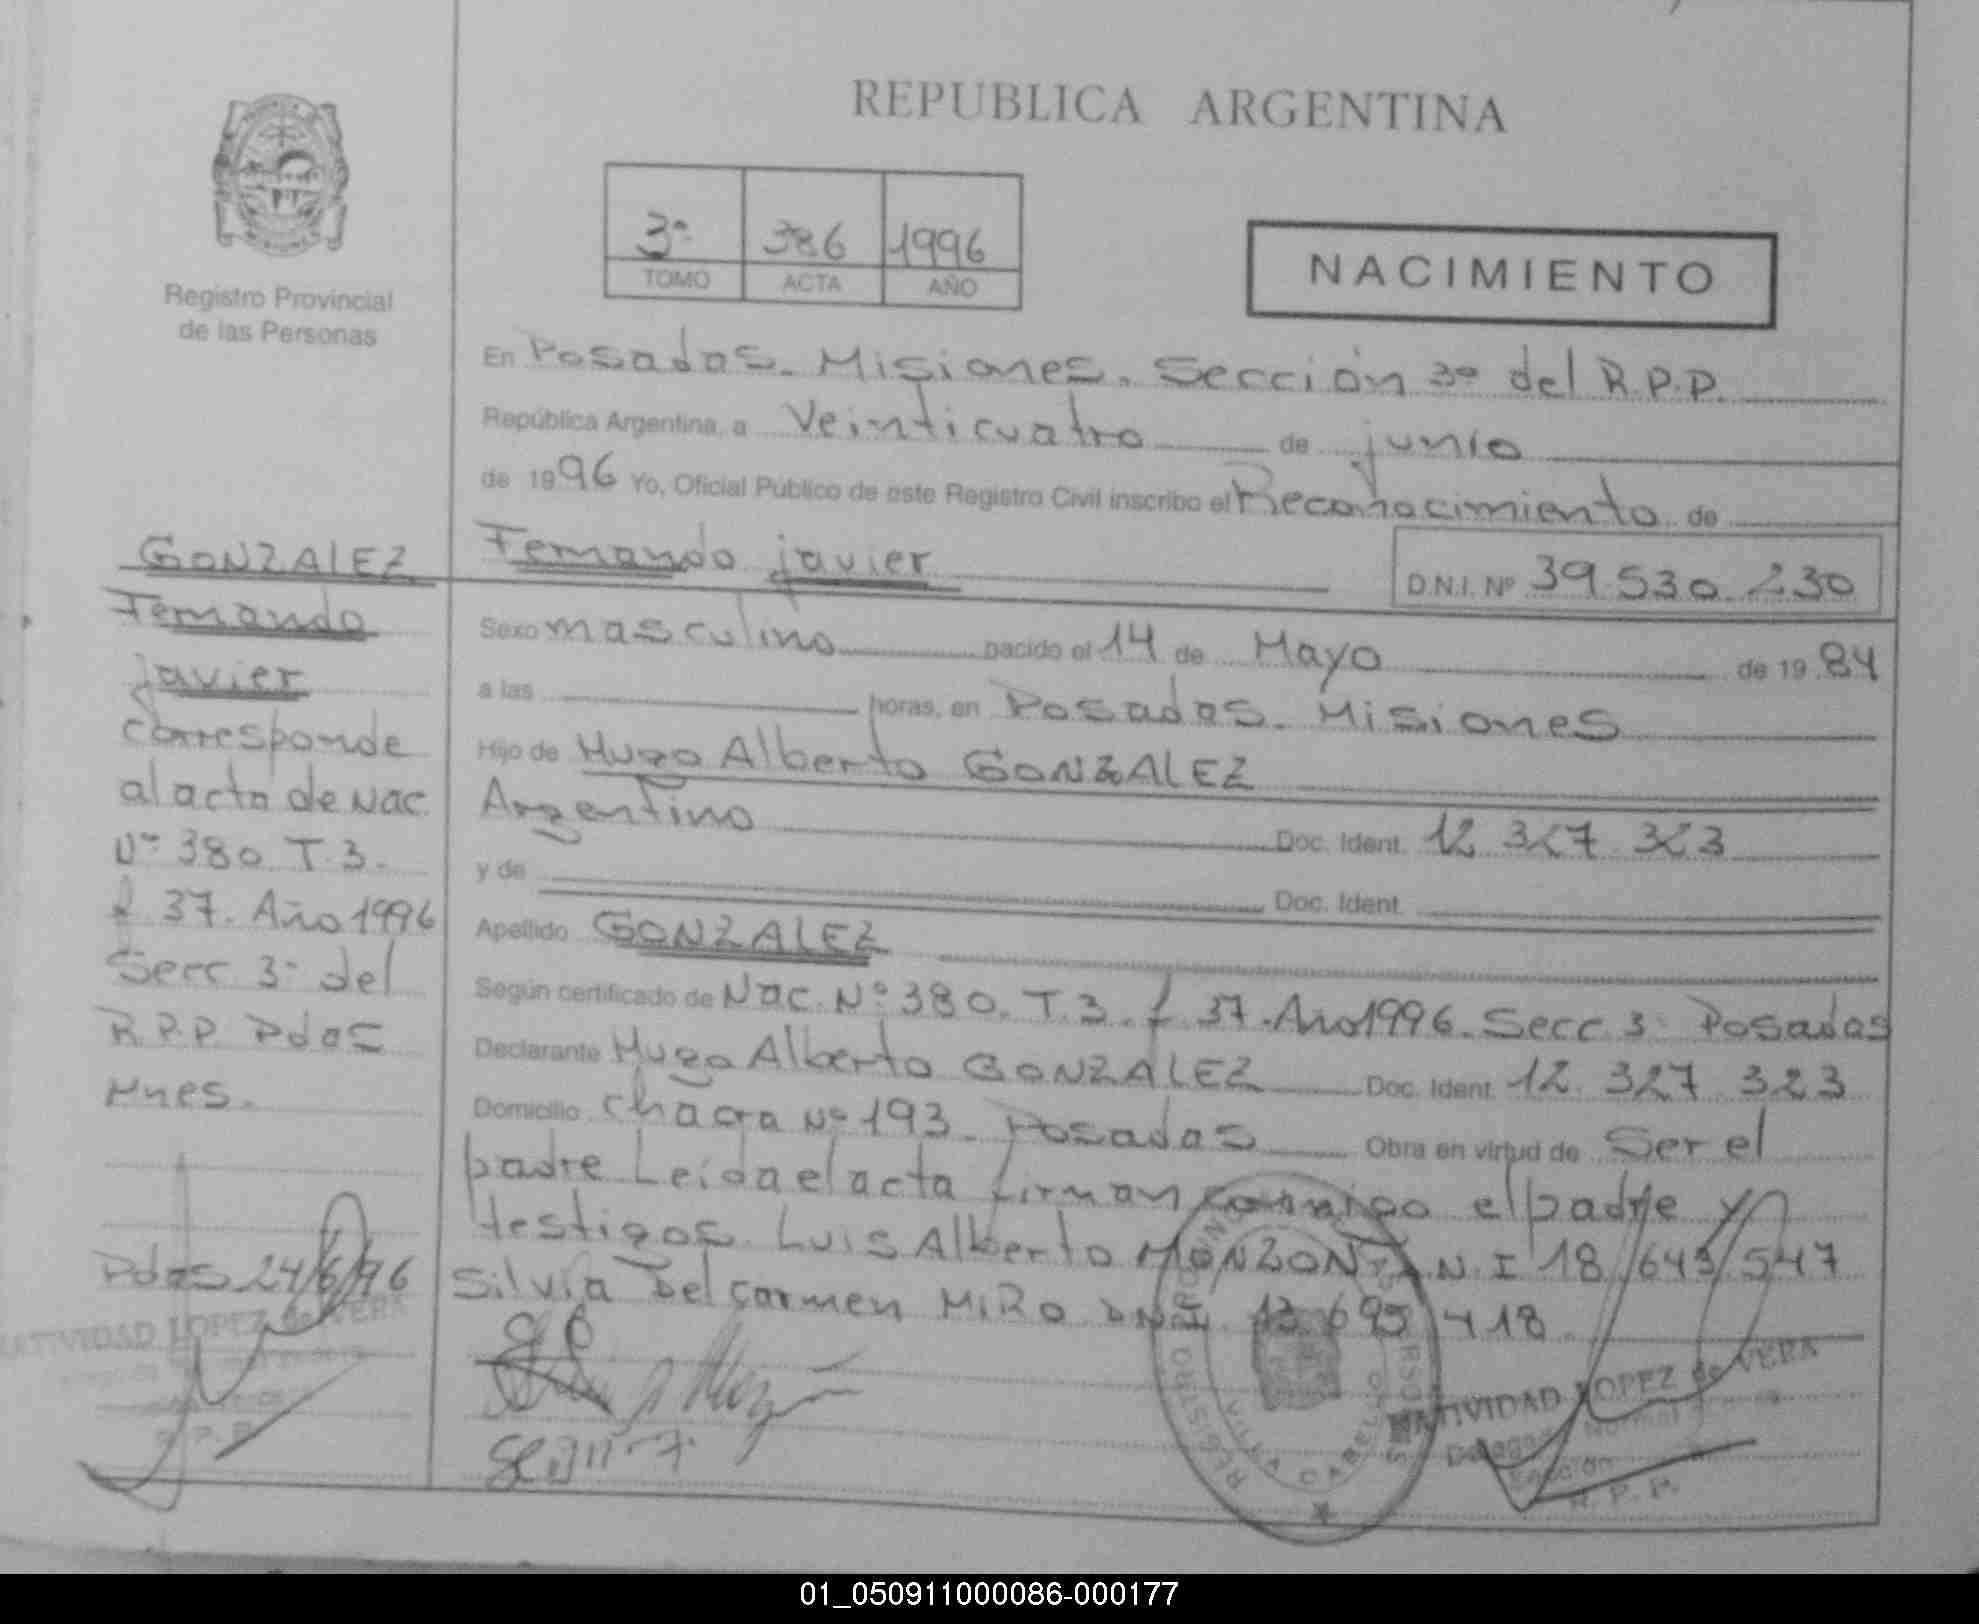 REPUBLICA ARGENTINA
3º 386 1996
TOMO ACTA AÑO
NACIMIENTO
Registro Provincial
de las Personas
En Posadas. Misiones. Sección 3º del R.P.P.
República Argentina, a Veinticuatro de junio
de 1996 Yo, Oficial Público de este Registro Civil inscribo el Reconocimiento de
Fernando javier D.N.I. Nº 39.530.230
Sexo masculino nacido el 14 de Mayo de 1984
a las horas, en Posadas. Misiones
Hijo de Hugo Alberto GONZALEZ
Argentino Doc. Ident. 12.327.323
y de Doc. Ident.
Apellido GONZALEZ
Según certificado de Nac. Nº 380. T.3. f. 37. Año 1996. Secc. 3º Posadas
Declarante Hugo Alberto GONZALEZ Doc. Ident. 12.327.323
Domicilio chacra Nº 193. Posadas Obra en virtud de Ser el
padre Leída el acta firman conmigo el padre y
testigos. Luis Alberto MONZON D.N.I 18/643/547
Silvia Del Carmen MIRO DNI. 418
GONZALEZ
Fernando
javier
corresponde
al acta de Nac.
Nº 380 T.3.
f. 37. Año 1996
Secc. 3º del
R.P.P. Pdas
Mnes.
Pdas 24/6/96
NATIVIDAD LOPEZ de VERA
R. P. P.
REGISTRO
VILLA CABELLO
NATIVIDAD LOPEZ de VERA
R. P. P.
01_050911000086-000177